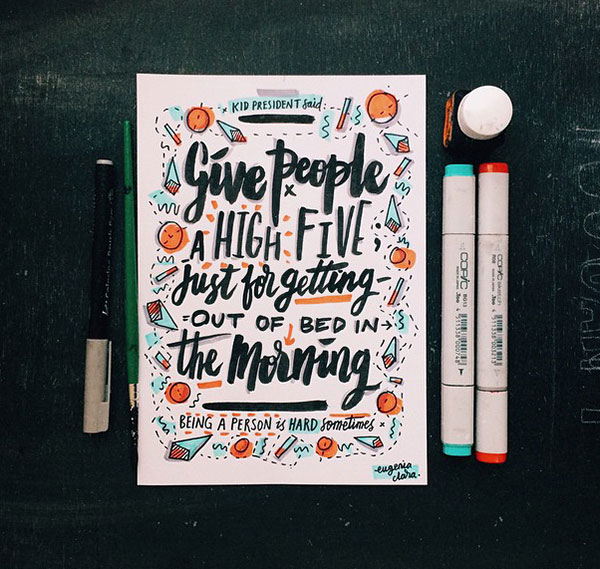 KID PRESIDENT said:
Give people
A HIGH FIVE,
just for getting
OUT OF BED IN
the Morning
BEING A PERSON is HARD sometimes
eugenia
clara.
COPIC
COPIC